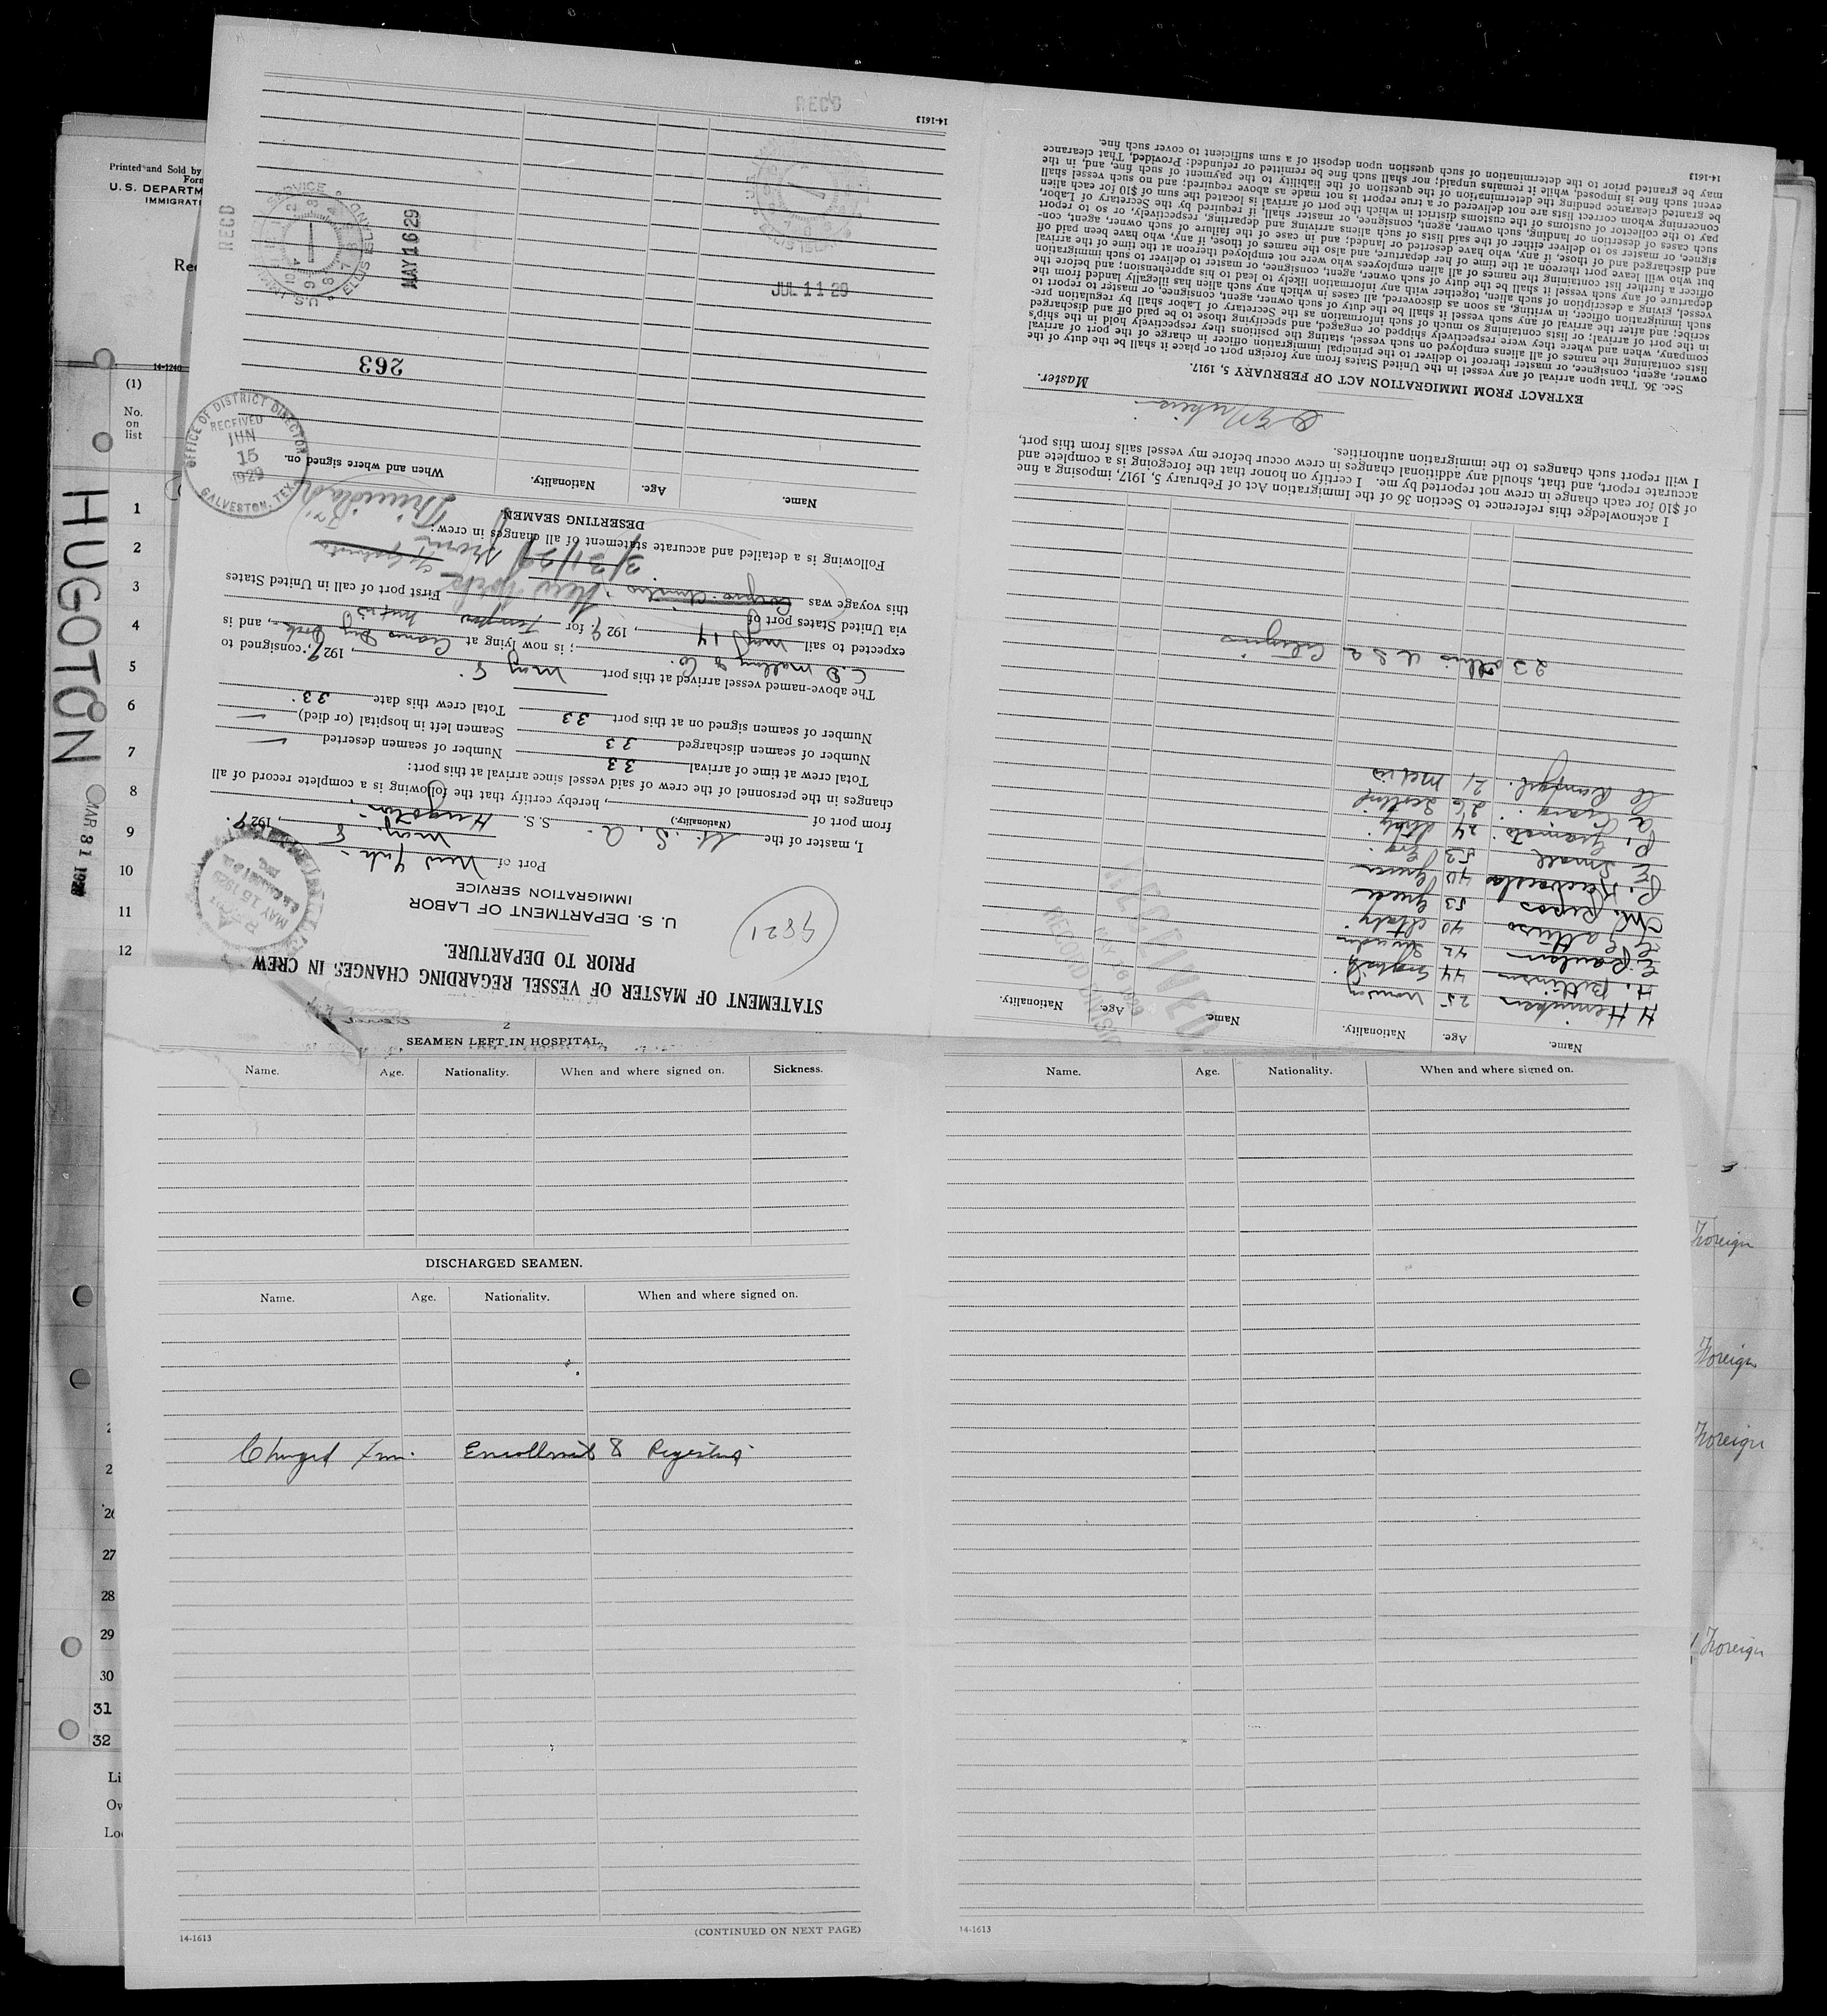 Printed and Sold by
Form
U.S. DEPARTM
IMMIGRATI
Re
14-1240
(1)
No.
on
list
HUGOTON
MAR 31 192
1
2
3
4
5
6
7
8
9
10
11
12
2
26
27
28
29
30
31
32
Li
Ow
Lo
STATEMENT OF MASTER OF VESSEL REGARDING CHANGES IN CREW
PRIOR TO DEPARTURE.
9821
U. S. DEPARTMENT OF LABOR
IMMIGRATION SERVICE
Port of New York
May 8, 1929.
I, master of the U. S. A. S. S. Hugoton
(Nationality.)
from port of , hereby certify that the following is a complete record of all
changes in the personnel of the crew of said vessel since arrival at this port:
Total crew at time of arrival 33 Number of seamen deserted —
Number of seamen discharged 33 Seamen left in hospital (or died) —
Number of seamen signed on at this port 33 Total crew this date 33.
The above-named vessel arrived at this port May 8. , 1929, consigned to
C. D. Mallory & Co. ; is now lying at Dry Dock , and is
expected to sail May 14 , 1929. for Tampico Mexico
via United States port of
this voyage was Corpus Christi New York First port of call in United States
3/31/29 from Trinidad
Following is a detailed and accurate statement of all changes in crew:
DESERTING SEAMEN
Name. Age. Nationality. When and where signed on.
263
OFFICE OF DISTRICT DIRECTOR
RECEIVED
JUN
15
1929
GALVESTON, TEX.
REC'D
U.S. IMMIGRATION SERVICE ELLIS ISLAND
MAY 16 29
REC'D
ELLIS ISLAND
JUL 11 29
14-1613
MAY 15 1929
Name. Age. Nationality. Name. Age. Nationality.
H Henriksen 25 Norway
H. 44 England
E. Paulson 42 Sweden
G. Catturo 40 Italy
M. Repos 53 Greece
P. 40 Greece
E. Small 53
P. 24 Italy
A. Craig 26 Scotland
21 Mexico
23 others U S A Citizens
RECEIVED
MAY 16 1929
RECORD DIVISION
I acknowledge this reference to Section 36 of the Immigration Act of February 5, 1917, imposing a fine
of $10 for each change in crew not reported by me. I certify on honor that the foregoing is a complete and
accurate report, and that, should any additional changes in crew occur before my vessel sails from this port,
I will report such changes to the immigration authorities.
Master.
EXTRACT FROM IMMIGRATION ACT OF FEBRUARY 5, 1917.
Sec. 36. That upon arrival of any vessel in the United States from any foreign port or place it shall be the duty of the
owner, agent, consignee, or master thereof to deliver to the principal immigration officer in charge of the port of arrival
lists containing the names of all aliens employed on such vessel, stating the positions they respectively hold in the ship's
company, when and where they were respectively shipped or engaged, and specifying those to be paid off and discharged
in the port of arrival; or lists containing so much of such information as the Secretary of Labor shall by regulation pre-
scribe; and after the arrival of any such vessel it shall be the duty of such owner, agent, consignee, or master to report to
such immigration officer, in writing, as soon as discovered, all cases in which any such alien has illegally landed from the
vessel, giving a description of such alien, together with any information likely to lead to his apprehension; and before the
departure of any such vessel it shall be the duty of such owner, agent, consignee, or master to deliver to such immigration
officer a further list containing the names of all alien employees who were not employed thereon at the time of the arrival
but who will leave port thereon at the time of her departure, and also the names of those, if any, who have been paid off
and discharged and of those, if any, who have deserted or landed; and in case of the failure of such owner, agent, con-
signee, or master so to deliver either of the said lists of such aliens arriving and departing, respectively, or so to report
such cases of desertion or landing, such owner, agent, consignee, or master shall, if required by the Secretary of Labor,
pay to the collector of customs of the customs district in which the port of arrival is located the sum of $10 for each alien
concerning whom correct lists are not delivered or a true report is not made as above required; and no such vessel shall
be granted clearance pending the determination of the question of the liability to the payment of such fine, and, in the
event such fine is imposed, while it remains unpaid; nor shall such fine be remitted or refunded: Provided, That clearance
may be granted prior to the determination of such question upon deposit of a sum sufficient to cover such fine.
14-1613
2
SEAMEN LEFT IN HOSPITAL.
Name. Age. Nationality. When and where signed on. Sickness.
DISCHARGED SEAMEN.
Name. Age. Nationality. When and where signed on.
Changed from Enrollment & Register
14-1613
(CONTINUED ON NEXT PAGE)
Name. Age. Nationality. When and where signed on.
14-1613
Foreign
Foreign
Foreign
Foreign